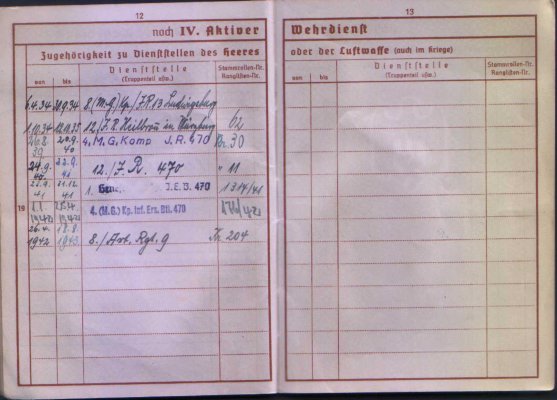 12
noch IV. Aktiver
Zugehörigkeit zu Dienststellen des Heeres
von bis Dienststelle (Truppenteil usw.) Stammrollen-Nr. Ranglisten-Nr.
8.(M.G.) Kp./J.R.13 Ludwigsburg
1.10.34 12./J.R. Heilbronn in Würzburg 62
26.8. 20.9.
39 40 4. M.G. Komp J.R. 470 Nr. 30
24.9. 22.9.
40. 41 12./J.R. 470 " 11
23.9. 31.12.
41 41 1. J.E.B. 470 1314/41
19
4. (M.G.) Kp. Inf. Ers. Btl. 470
26.4. 18.8.
1942. 1943. 8./Art. Rgt. 9 Nr 204
13
Wehrdienst
oder der Luftwaffe (auch im Kriege)
von bis Dienststelle (Truppenteil usw.) Stammrollen-Nr. Ranglisten-Nr.